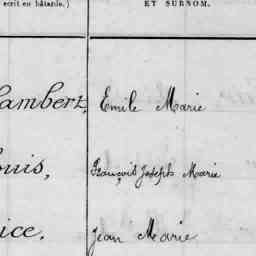 écrit en bâtarde.) ET SURNOM.
lambert, Emile Marie
ouis, François Joseph Marie
ice, Jean Marie